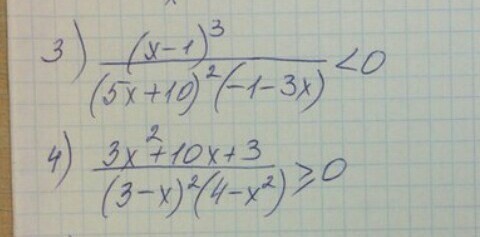 3) (x-1)³ / (5x+10)²(-1-3x) < 0
4) 3x²+10x+3 / (3-x)²(4-x²) ≥ 0